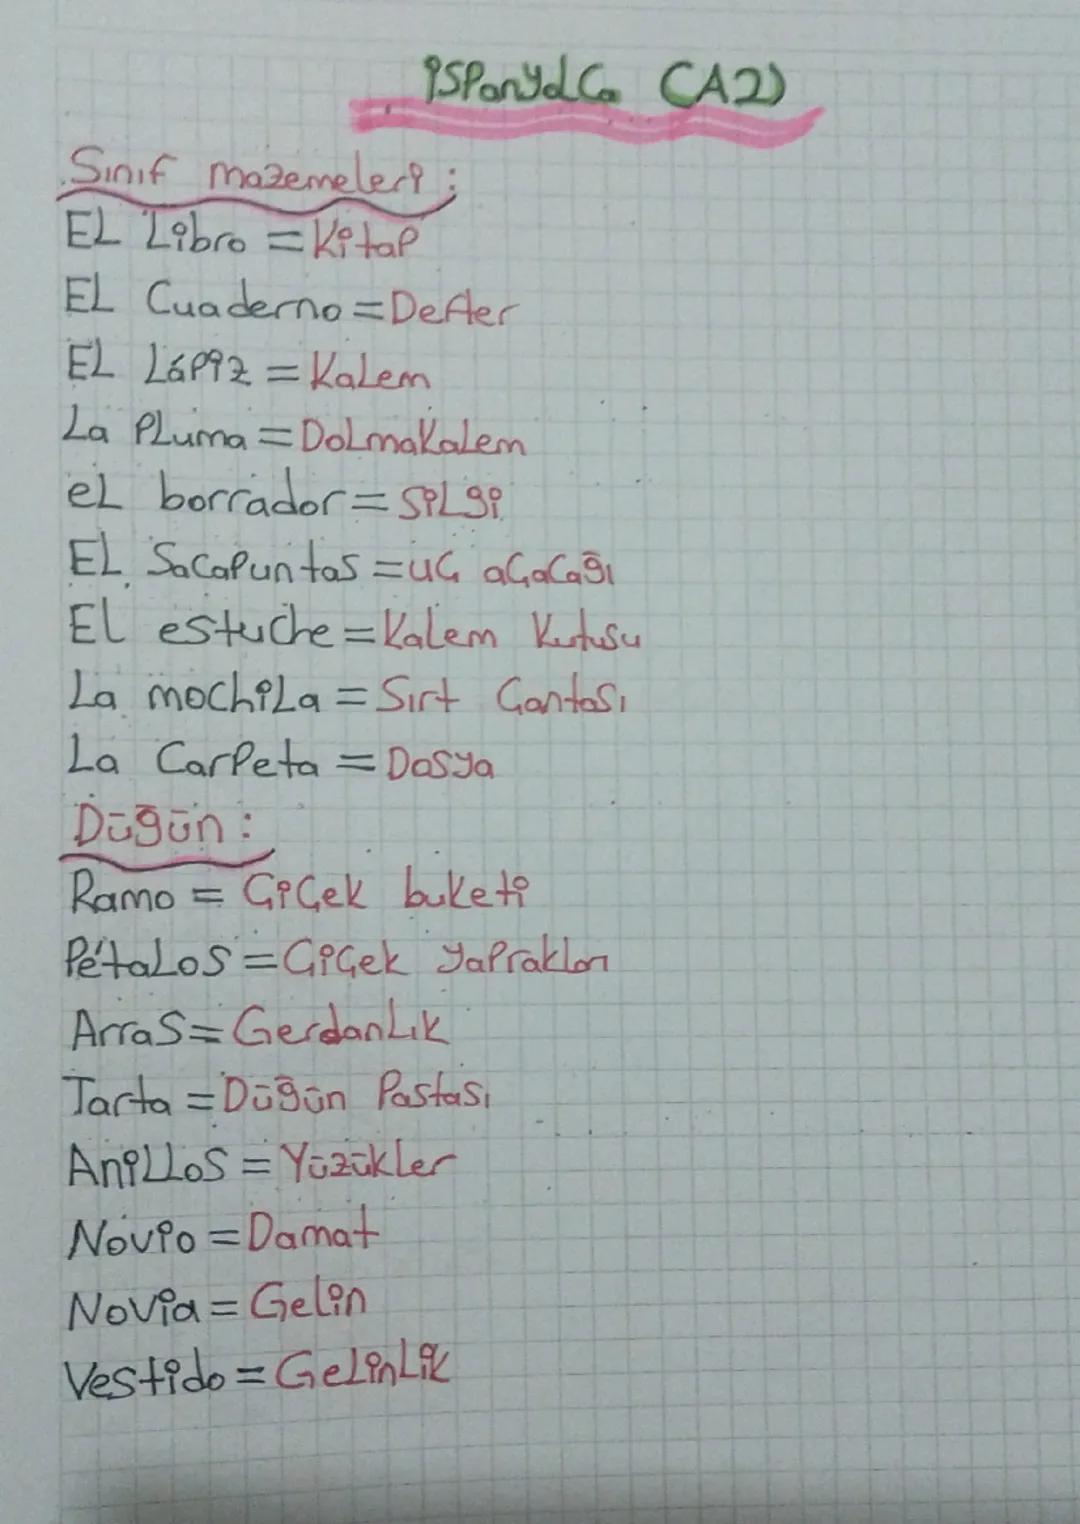 İspanyolca (A2)
Sınıf mazemeleri:
EL Libro = Kitap
EL Cuaderno = Defter
EL Lápiz = Kalem
La Pluma = Dolmakalem
el borrador = Silgi
EL Sacapuntas = uç açacağı
El estuche = Kalem Kutusu
La mochila = Sırt Çantası
La Carpeta = Dosya
Düğün:
Ramo = Çiçek buketi
Pétalos = Çiçek yaprakları
Arras = Gerdanlık
Tarta = Düğün Pastası
Anillos = Yüzükler
Novio = Damat
Novia = Gelin
Vestido = Gelinlik